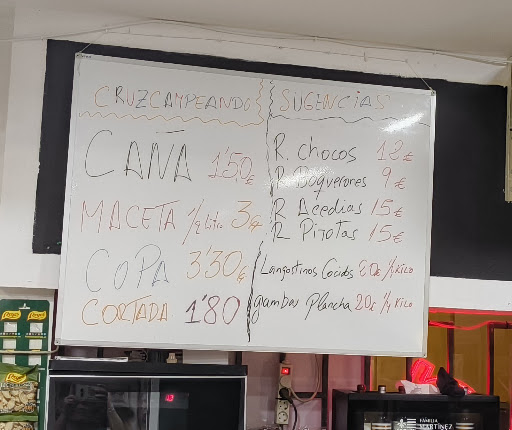 CRUZCAMPEANDO
CAÑA 1'50€
MACETA 1/2 Litro 3€
COPA 3'30€
CORTADA 1'80
SUGENCIAS
R. chocos 12€
R Boquerones 9€
R Acedias 15€
R Pijotas 15€
Langostinos Cocidos 20€ 1/4 Kilo
gambas Plancha 20€ 1/4 Kilo
FAMILIA
MARTÍNEZ